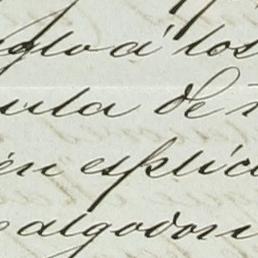 eglo á los
ula de
en esplic
algodon